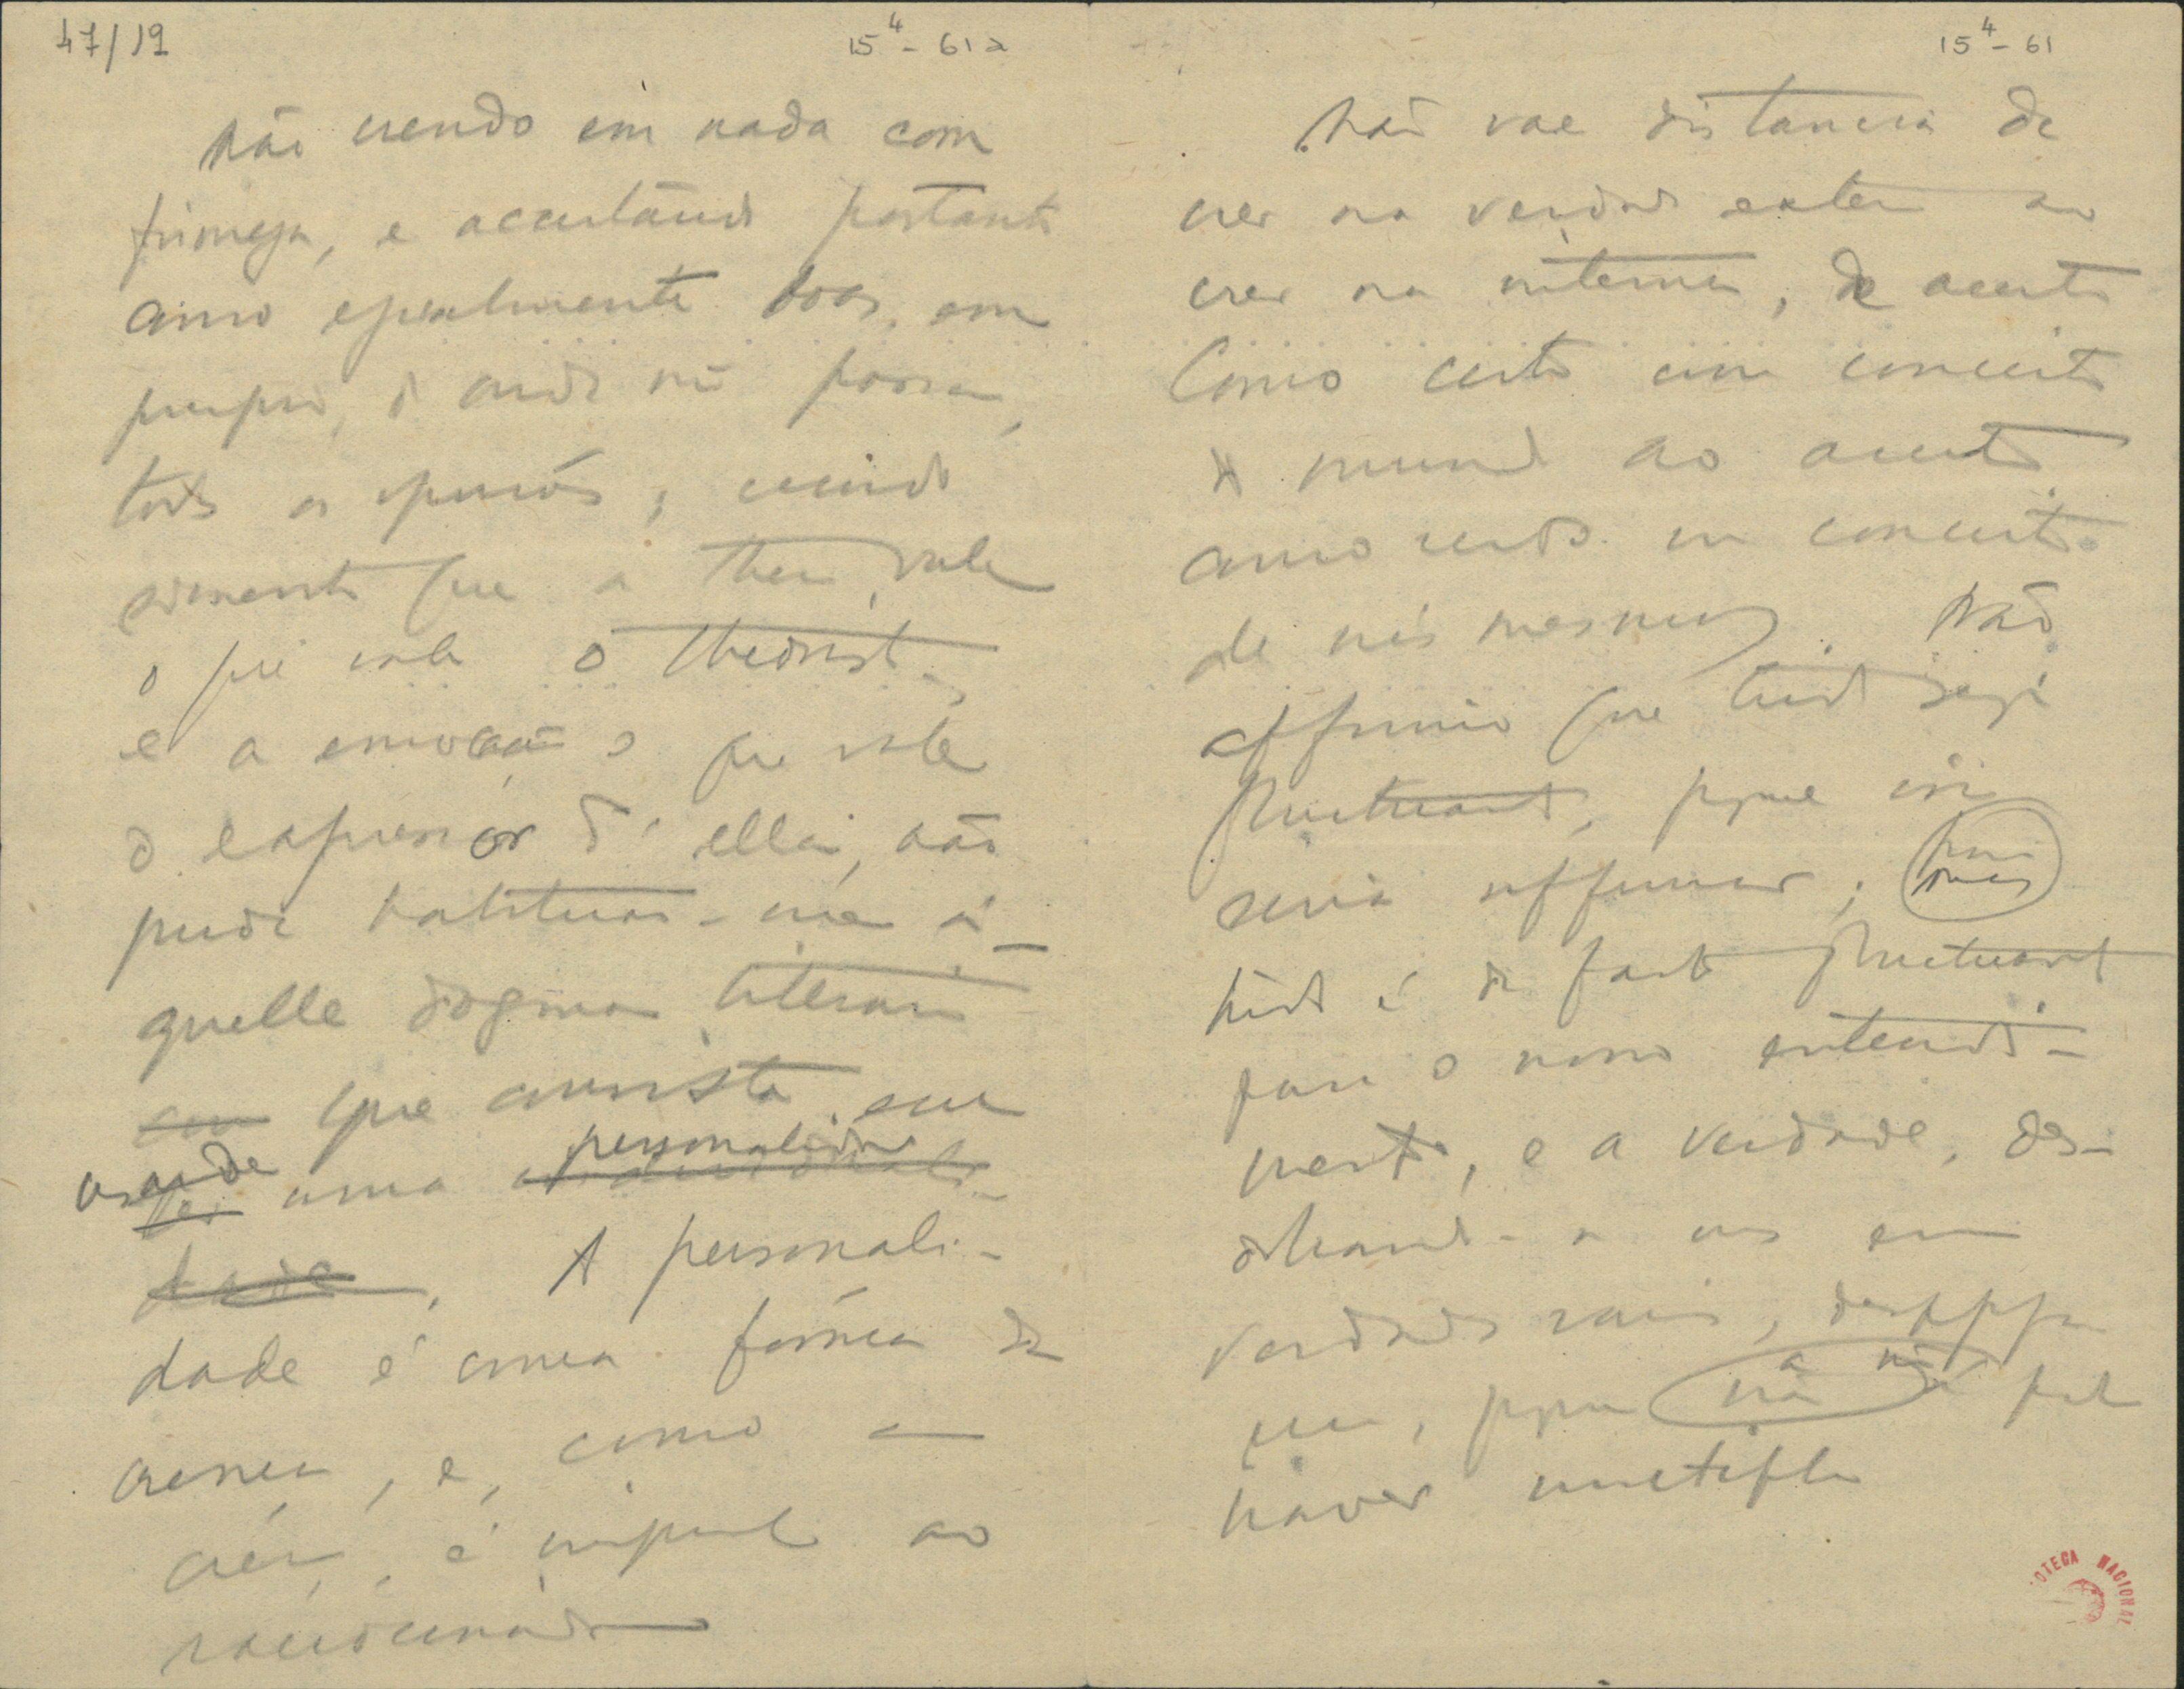 47/19
15⁴-61a
Não crendo em nada com
firmeza, e acceitando portanto
como egualmente boas, em
principio, d'onde não possa,
todas as opiniões; crendo
sómente que a theoria vale
o que vale o theorista,
e a emoção o que vale
a expressão d'ella, não
pude habituar-me á-
quelle dogma literario
em que consiste em
usar de
ter uma individuali-
personalidade
dade. A personali-
dade é uma fórma de
crença, e, como a
crença, é impossivel ao
raciocinador
15⁴-61
Não vae distancia de
crer na verdade externa ao
crer na interna, de acceitar
como certo um conceito
do mundo ao acceitar
como certo um conceito
de nós mesmos. Não
affirmo que tudo seja
fluctuante, porque isso
seria affirmar;
pois
mas
tudo é de facto fluctuante
para o nosso entendi-
mento, e a verdade, des-
dobrando-se-nos em
verdades varias, desappa-
rece, porque não pode
haver multipla
OTECA NACIONAL